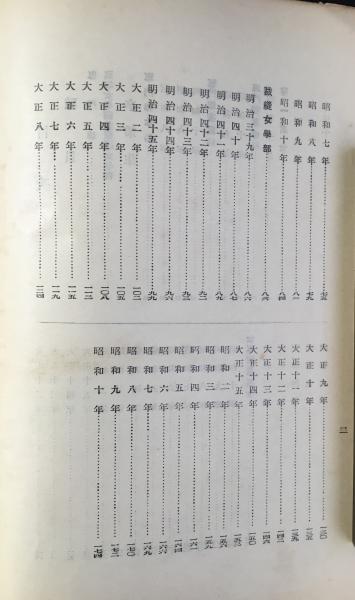 昭和七年
昭和八年……七九
昭和九年……八一
昭和十年……八四
裁縫女學部……八六
明治三十九年……八六
明治四十年……八七
明治四十一年……八九
明治四十二年
明治四十三年
明治四十四年……九六
明治四十五年……九九
大正二年
大正三年……一〇五
大正四年……一〇八
大正五年……一一三
大正六年……一一五
大正七年……一一九
大正八年……一二四
大正九年……一三〇
大正十年……一三五
大正十一年……一三九
大正十二年
大正十三年……一四六
大正十四年……一五〇
大正十五年
昭和二年……一五六
昭和三年……一五九
昭和四年
昭和五年……一六四
昭和六年……一六六
昭和七年……一六九
昭和八年……一七〇
昭和九年
昭和十年……一七四